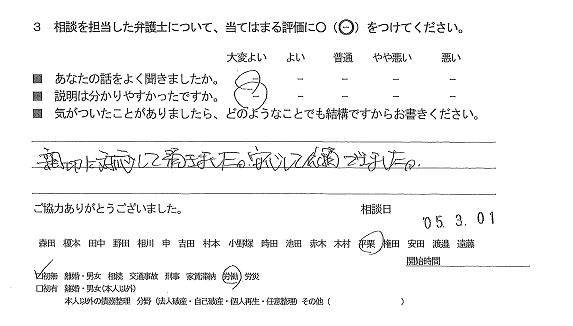 3 相談を担当した弁護士について、当てはまる評価に○(㊀)をつけてください。
大変よい よい 普通 やや悪い 悪い
■ あなたの話をよく聞きましたか。 － － － － －
■ 説明は分かりやすかったですか。 － － － － －
■ 気がついたことがありましたら、どのようなことでも結構ですからお書きください。
親切に対応して頂きました。安心して依頼できました。
ご協力ありがとうございました。 相談日 '05.3.01
森田 榎本 田中 野田 相川 申 吉田 村本 小野塚 時田 池田 赤木 木村 平栗 権田 安田 渡邉 遠藤
開始時間
□初無 離婚・男女 相続 交通事故 刑事 家賃滞納 労働 労災
□初有 離婚・男女(本人以外)
本人以外の債務整理 分野(法人破産・自己破産・個人再生・任意整理)その他( )